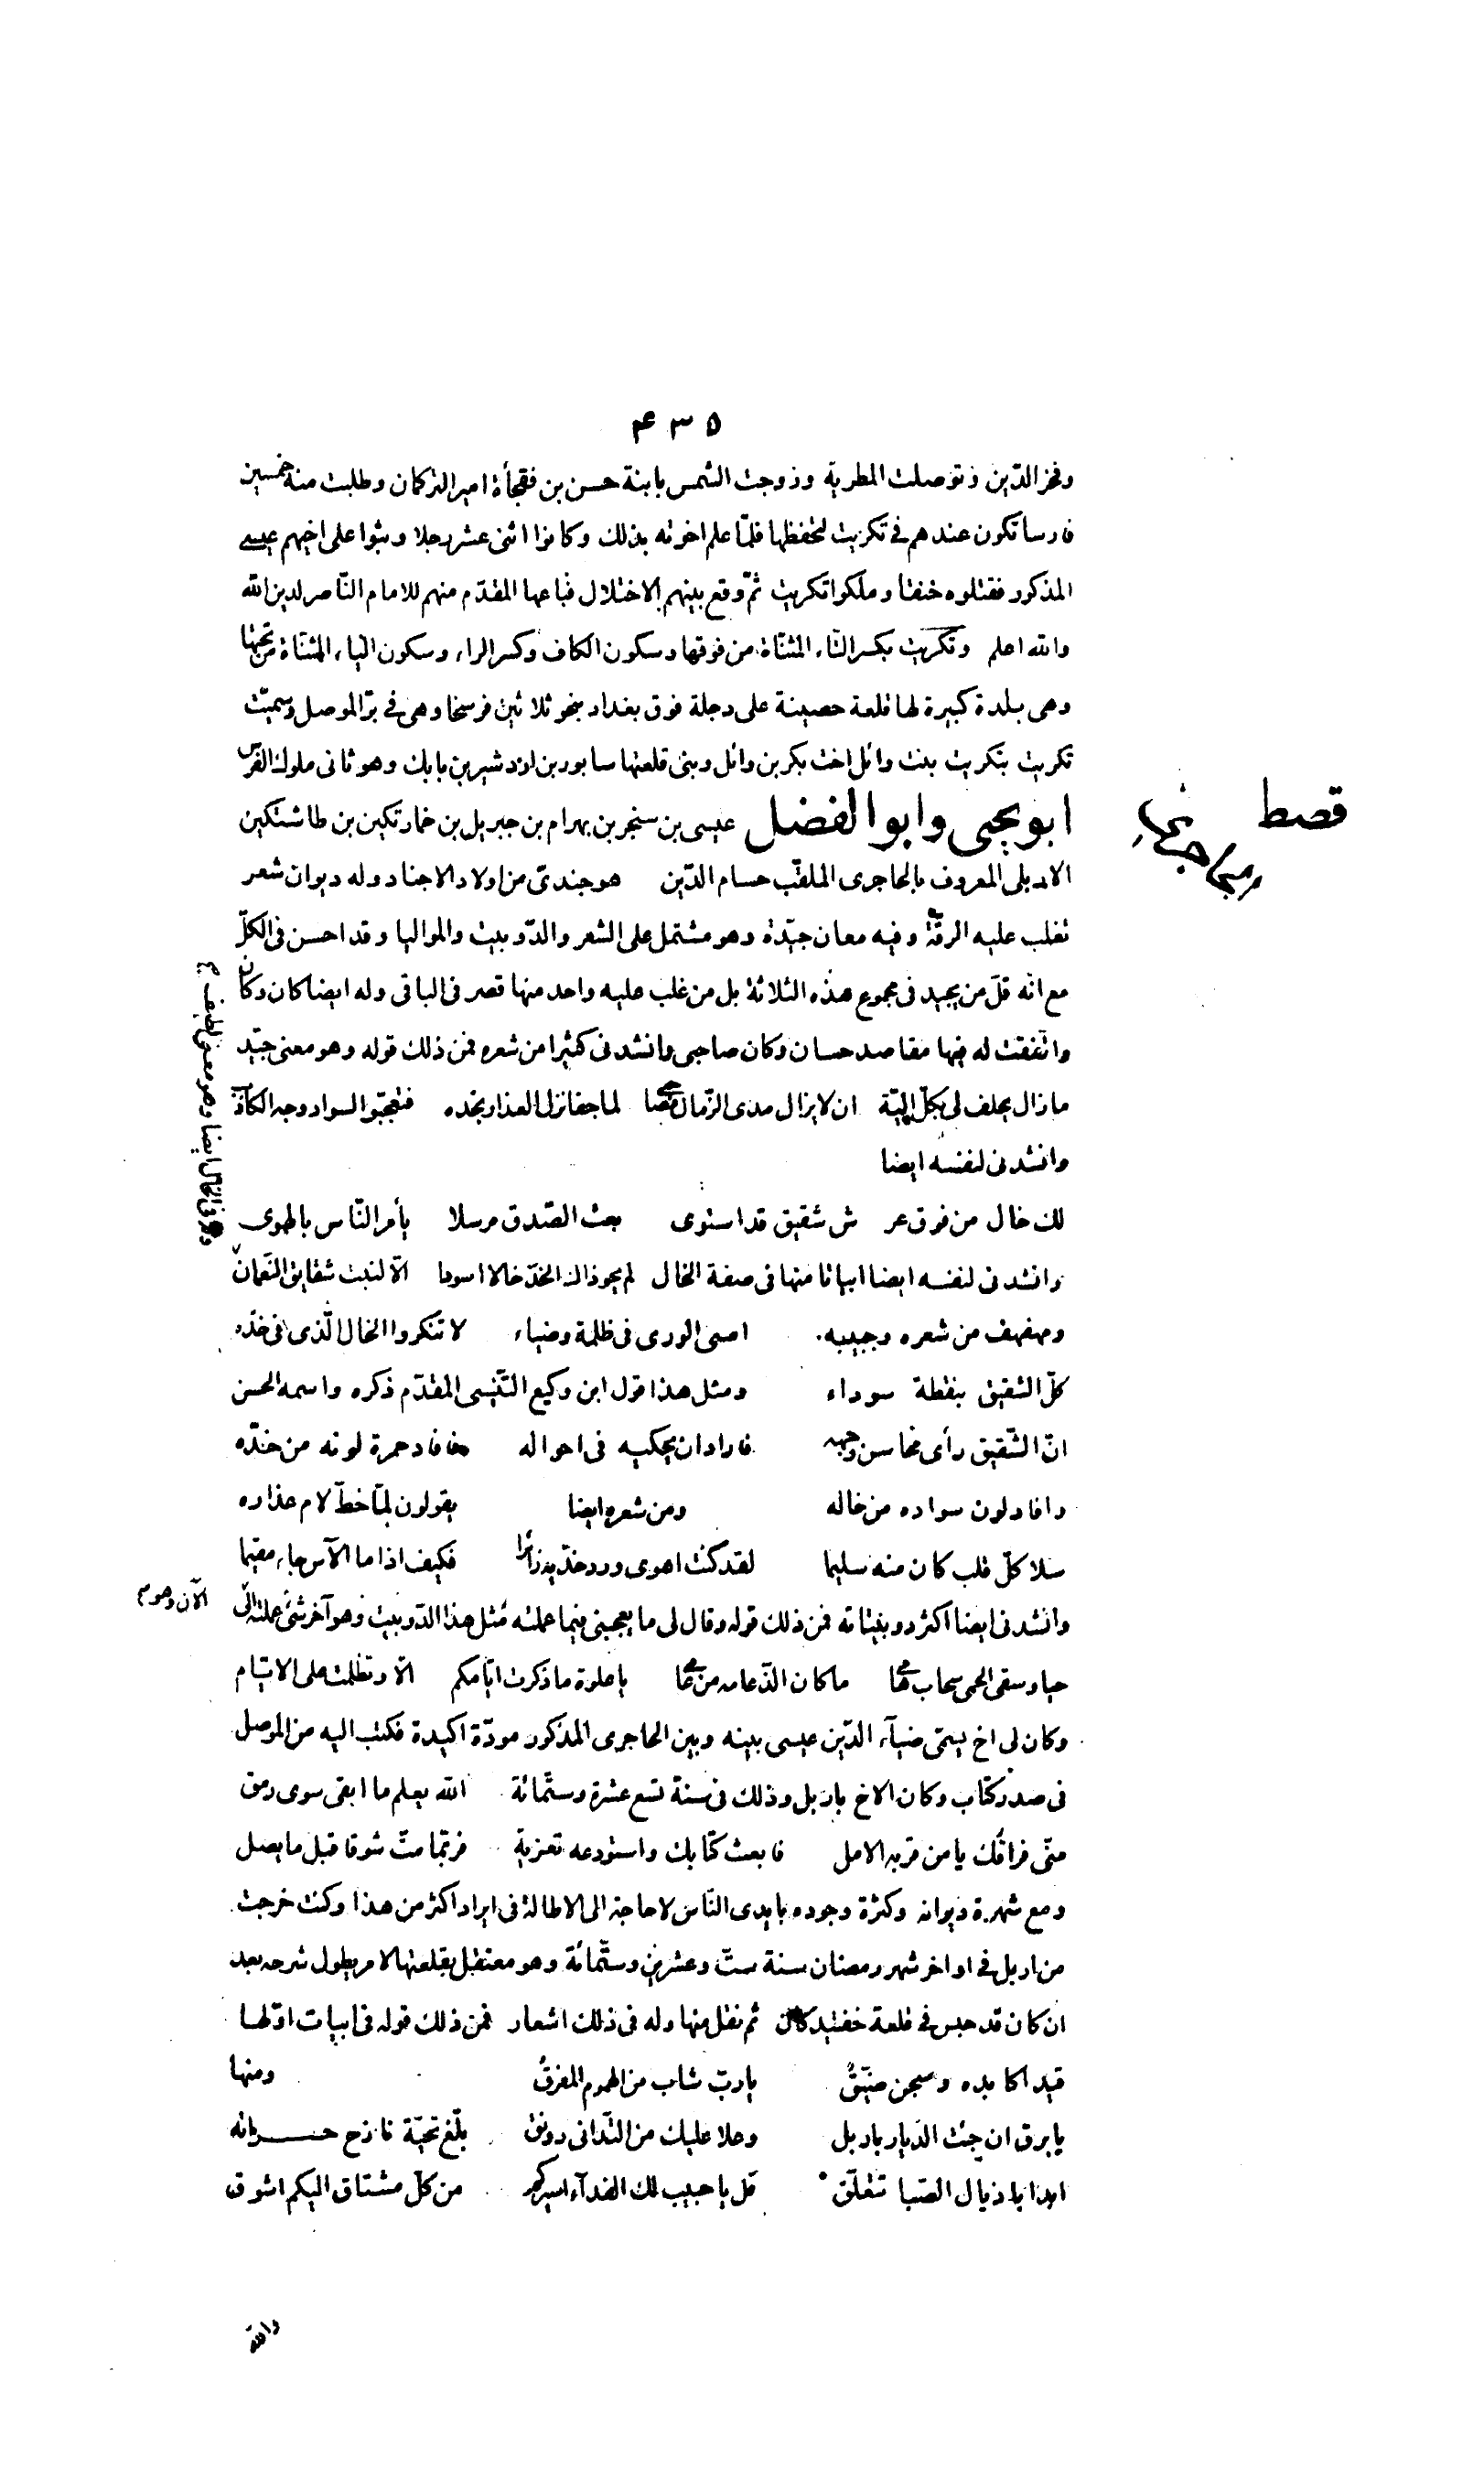 ٤٣٥
وفخر الدّين وتوصلت المطربة وزوجت الشمس بابنة حسن بن قفجأة امير التركمان وطلبت منه خمسين
فارسا تكون عندهم فى تكريت لتحفظها فلمّا علم اخوته بذلك وكانوا اثنى عشر رجلا وثبوا على اخيهم عيسى
المذكور فقتلوه خنقا وملكوا تكريت ثمّ وقع بينهم الاختلال فباعها المقدّم منهم للامام النّاصر لدين الله
والله اعلم وتكريت بكسر التاء المثنّاة من فوقها وسكون الكاف وكسر الراء وسكون الياء المثنّاة من تحتها
وهى بلدة كبيرة لها قلعة حصينة على دجلة فوق بغداد بنحو ثلاثين فرسخا وهى فى برّ الموصل وسميّت
تكريت بتكريت بنت وائل اخت بكر بن وائل وبنى قلعتها سابور بن اردشير بن بابك وهو ثانى ملوك الفرس
ابو يحيى وابو الفضل عيسى بن سنجر بن بهرام بن جبريل بن خمارتكين بن طاشتكين
قصط
الاربلى المعروف بالحاجرى الملقّب حسام الدّين هو جندىّ من اولاد الاجناد وله ديوان شعر
تغلب عليه الرقّة وفيه معان جيّدة وهو مشتمل على الشعر والدّوبيت والمواليا وقد احسن فى الكلّ
مع انّه قلّ من يجيد فى مجموع هذه الثلاثة بل من غلب عليه واحد منها قصر فى الباقى وله ايضا كان وكان
واتّفقت له فيها مقاصد حسان وكان صاحبى وانشدنى كثيرا من شعره فمن ذلك قوله وهو معنى جيّد
ما زال يحلف لى بكلّ اليّة ان لا يزال مدى الزّمان مصاحبى لما جفا نزل العذار بخده فتعجّبوا لسواد وجه الكاذب
وانشدنى لنفسه ايضا
لك خال من فوق عر ش شقيق قد استوى بعث الصّدق مرسلا يأمر النّاس بالهوى
وانشدنى لنفسه ايضا ابياتا منها فى صفة الخال لم يحو ذاك الخدّ خالا اسودا الّا لنبت شقايق النّعمان
ومهفهف من شعره وجبينه امسى الورى فى ظلمة وضياء لا تنكروا الخال الّذى فى خدّه
كلّ الشقيق بنقطة سوداء ومثل هذا قول ابن وكيع التّنيسى المقدّم ذكره واسمه الحسن
انّ الشّقيق رأى محاسن وجهه فاراد ان يحكيه فى احواله فافاد حمرة لونه من خدّه
وافاد لون سواده من خاله ومن شعره ايضا يقولون لمّا خطّ لام عذاره
سلا كلّ قلب كان منه سليما لقد كنت اهوى ورد خدّيه زائرا فكيف اذا ما الآس جاء مقيما
وانشدنى ايضا اكثر دوبيتاته فمن ذلك قوله وقال لى ما يعجبنى فيما عملته مثل هذا الدّوبيت وهو آخر شئ عملته الى
الآن وهو
حيا وسقى الحمى سحاب هامى ما كان الذّ عامه من عام يا علوة ما ذكرت ايّامكم الّا وتظلمت على الايّام
وكان لى اخ يسمّى ضيآء الدّين عيسى بينه وبين الحاجرى المذكور مودّة اكيدة فكتب اليه من الموصل
فى صدر كتاب وكان الاخ باربل وذلك فى سنة تسع عشرة وستّمائة الله يعلم ما ابقى سوى رمق
منّى فراقك يا من قربه الامل فابعث كتابك واستودعه تعزية فربّما متّ شوقا قبل ما يصل
ومع شهرة ديوانه وكثرة وجوده بايدى النّاس لا حاجة الى الاطالة فى ايراد اكثر من هذا وكنت خرجت
من اربل فى اواخر شهر رمضان سنة ستّ وعشرين وستّمائة وهو معتقل بقلعتها لامر يطول شرحه بعد
ان كان قد حبس فى قلعة خفتيدكان ثم نقل منها وله فى ذلك اشعار فمن ذلك قوله فى ابيات اوّلها
قيد اكابده وسجن ضيّق يا ربّ شاب من الهموم المفرق ومنها
يا برق ان جئت الدّيار باربل وعلا عليك من التّدانى رونق بلّغ تحيّة نازح حسراته
ابدا باذيال الصّبا تتعلّق قل يا حبيب لك الفدآء اسيركم من كلّ مشتاق اليكم اشوق
والله